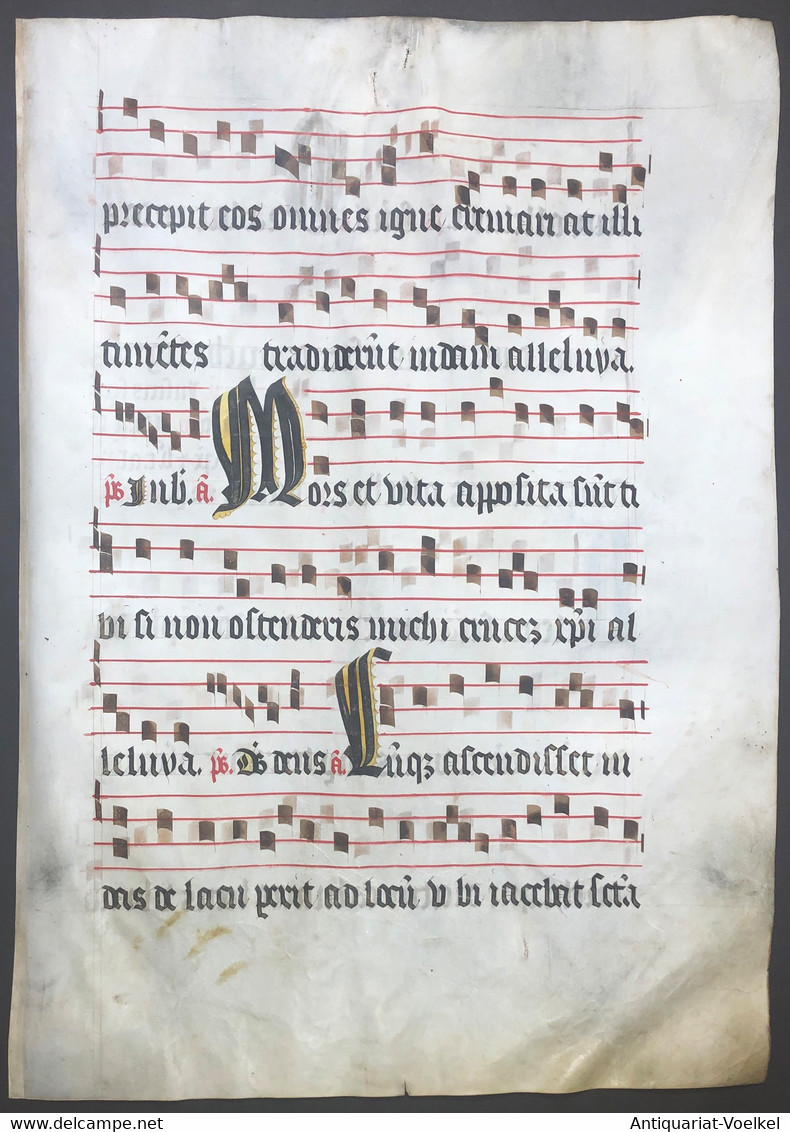 precepit eos omnes igne cremari at illi
timẽtes tradiderũt iudam alleluya.
p̃s Jub̃. ã. Mors et vita apposita sũt ti
bi si non ostenderis michi crucez xp̃i al
leluya. p̃s. D̃s deus ã. Cũqz ascendisset iu
das de lacu perxit ad locũ v bi iacebat sctã
Antiquariat-Voelkel